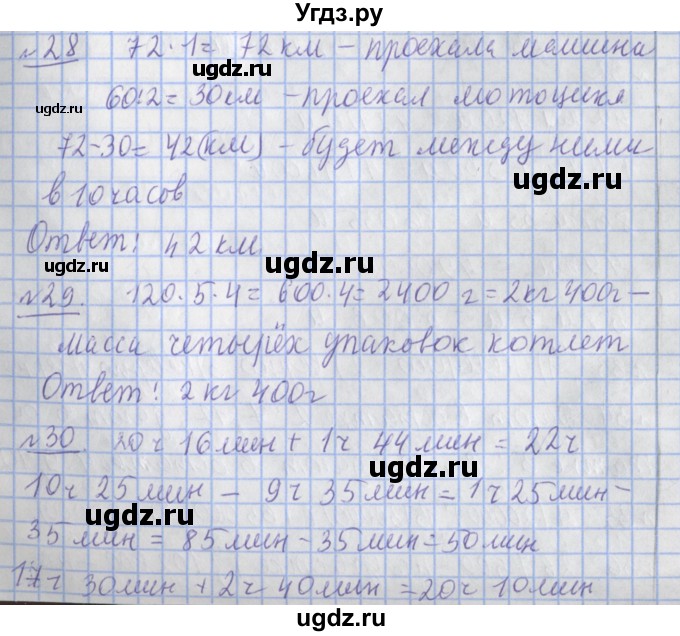 Угдз.ру
№28 72·1= 72 км – проехала машина
ugdz.ru
ugdz.ru
60:2= 30 км – проехал мотоцикл
72-30= 42(км) – будет между ними
ugdz.ru
в 10 часов
ugdz.ru
Ответ: 42 км.
№29. 120·5·4= 600·4= 2400 г = 2кг 400г –
ugdz.ru
масса четырёх упаковок котлет
Ответ: 2 кг 400г
№30. 20ч 16мин + 1ч 44мин = 22ч
ugdz.ru
10ч 25мин – 9ч 35мин = 1ч 25мин –
ugdz.ru
35мин = 85мин – 35мин = 50мин
17ч 30мин + 2ч 40мин = 20ч 10мин
ugdz.ru
ugdz.ru